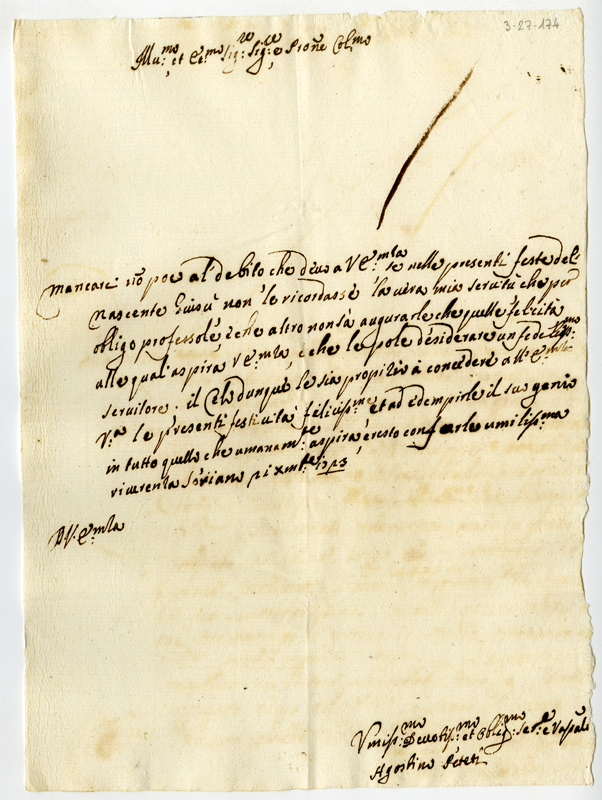 3-27-174
Illu:mo et Ecc:mo Sig:re Sig:re e Prone Col:mo
mancarei nõ poco al debito che devo a V Ecc:mza se nelle presenti feste del
nascente Giesù non le ricordasse la vera mia servitù che per
obligo professole, e che altro non sà augurarle che quelle felicità
alle quali aspira V Ecc:mza, e che le pole desiderare un fedelissimo
servitore. il Cielo dunque le sia propitio à concedere all' Ecc:mza
V:ra le presenti festività felicissime et ad adempirle il suo genio
in tutto quello che umanam:te aspira, e resto con farle umilissima
riverenza Soriano 21 xmbre 1723
D V. Ecc:mza
Umiliss:mo Devotis:mo et Oblig:mo Ser:e e Vassallo
Agostino